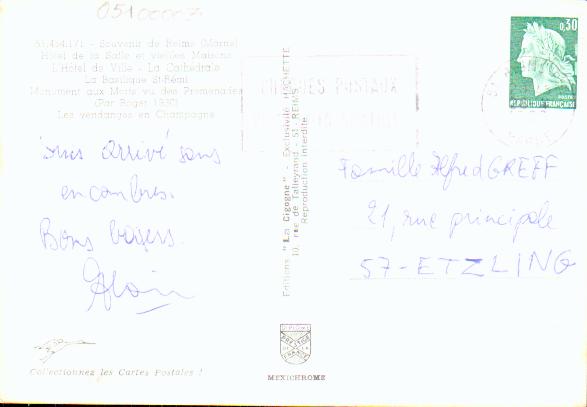 05100007
51.454.171 - Souvenir de Reims (Marne)
Hôtel de la Salle et vieilles Maisons
L'Hôtel de Ville - La Cathédrale
La Basilique St-Rémi
Monument aux Morts vu des Promenades
(Par Roger 1930)
Les vendanges en Champagne
arrivé sans
encombres.
Bons baisers.
Alain
Editions "La Cigogne" - Exclusivité HACHETTE
10, rue de Talleyrand - 51-REIMS
Reproduction interdite
0,30
POSTES
REPUBLIQUE FRANÇAISE
CHEQUES POSTAUX
Famille Alfred GREFF
21, rue principale
57-ETZLING
DIPLOME
PRESTIGE
DE LA
FRANCE
MEXICHROME
Collectionnez les Cartes Postales !